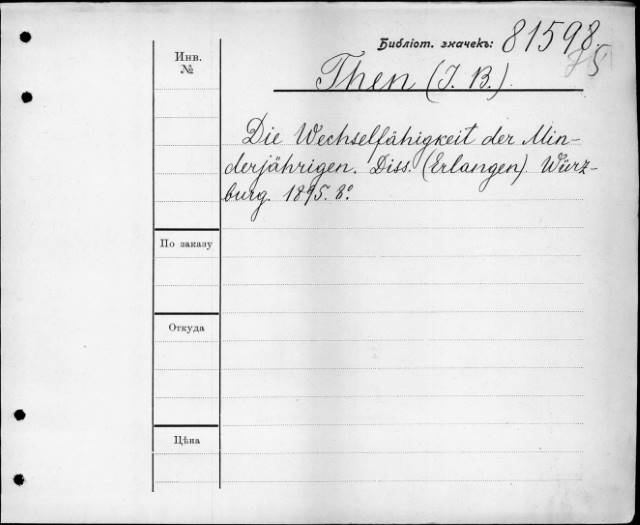 Библіот. значекъ: 81598
5
Инв.
№
Then (J. B.)
Die Wechselfähigkeit der Min-
derjährigen. Diss. (Erlangen). Würz-
burg. 1895. 8º
По заказу
Откуда
Цѣна